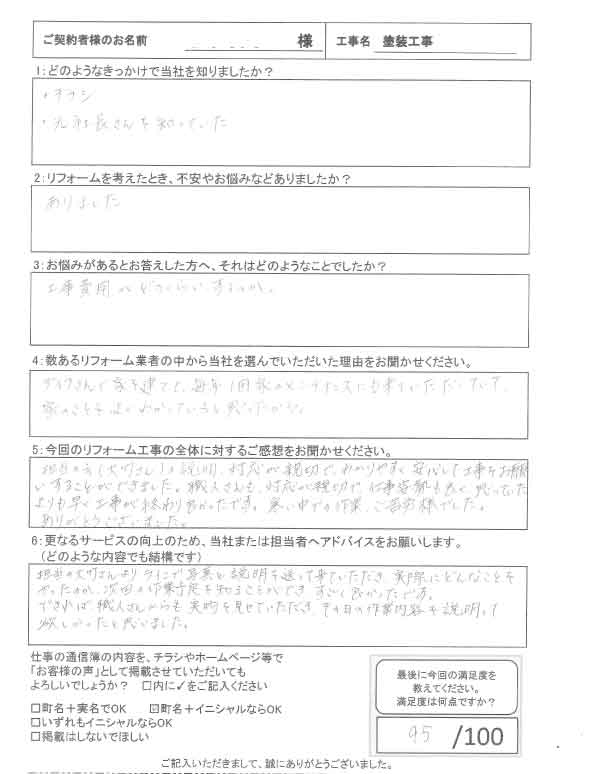 ご契約者様のお名前 様 工事名 塗装工事
1:どのようなきっかけで当社を知りましたか?
・チラシ
・元社長さんを知っていた
2:リフォームを考えたとき、不安やお悩みなどありましたか?
ありました
3:お悩みがあるとお答えした方へ、それはどのようなことでしたか?
工事費用がどのくらいするのか。
4:数あるリフォーム業者の中から当社を選んでいただいた理由をお聞かせください。
さんで家を建てて、毎年1回家のメンテナンスにも来ていただいていて、
家のことをよくわかっていると思ったから。
5:今回のリフォーム工事の全体に対するご感想をお聞かせください。
担当の方(大町さん)の説明、対応が親切で、わかりやすく安心して工事をお願
いすることができました。職人さんも、対応が親切で仕事姿勢も良く思っていた
よりも早く工事が終わり良かったです。寒い中での作業、ご苦労様でした。
ありがとうございました。
6:更なるサービスの向上のため、当社または担当者へアドバイスをお願いします。
(どのような内容でも結構です)
担当の大町さんよりラインで写真と説明を送って来ていただき、実際にどんなことを
やったのか、次回の作業予定を知ることができ、すごく良かったです。
できれば職人さんからも実物を見せていただき、その日の作業内容を説明して
欲しかったと思いました。
仕事の通信簿の内容を、チラシやホームページ等で
「お客様の声」として掲載させていただいても
よろしいでしょうか? □内に✓をご記入ください
□町名+実名でOK ☑町名+イニシャルならOK
□いずれもイニシャルならOK
□掲載はしないでほしい
最後に今回の満足度を
教えてください。
満足度は何点ですか?
95 /100
ご記入いただきまして、誠にありがとうございました。